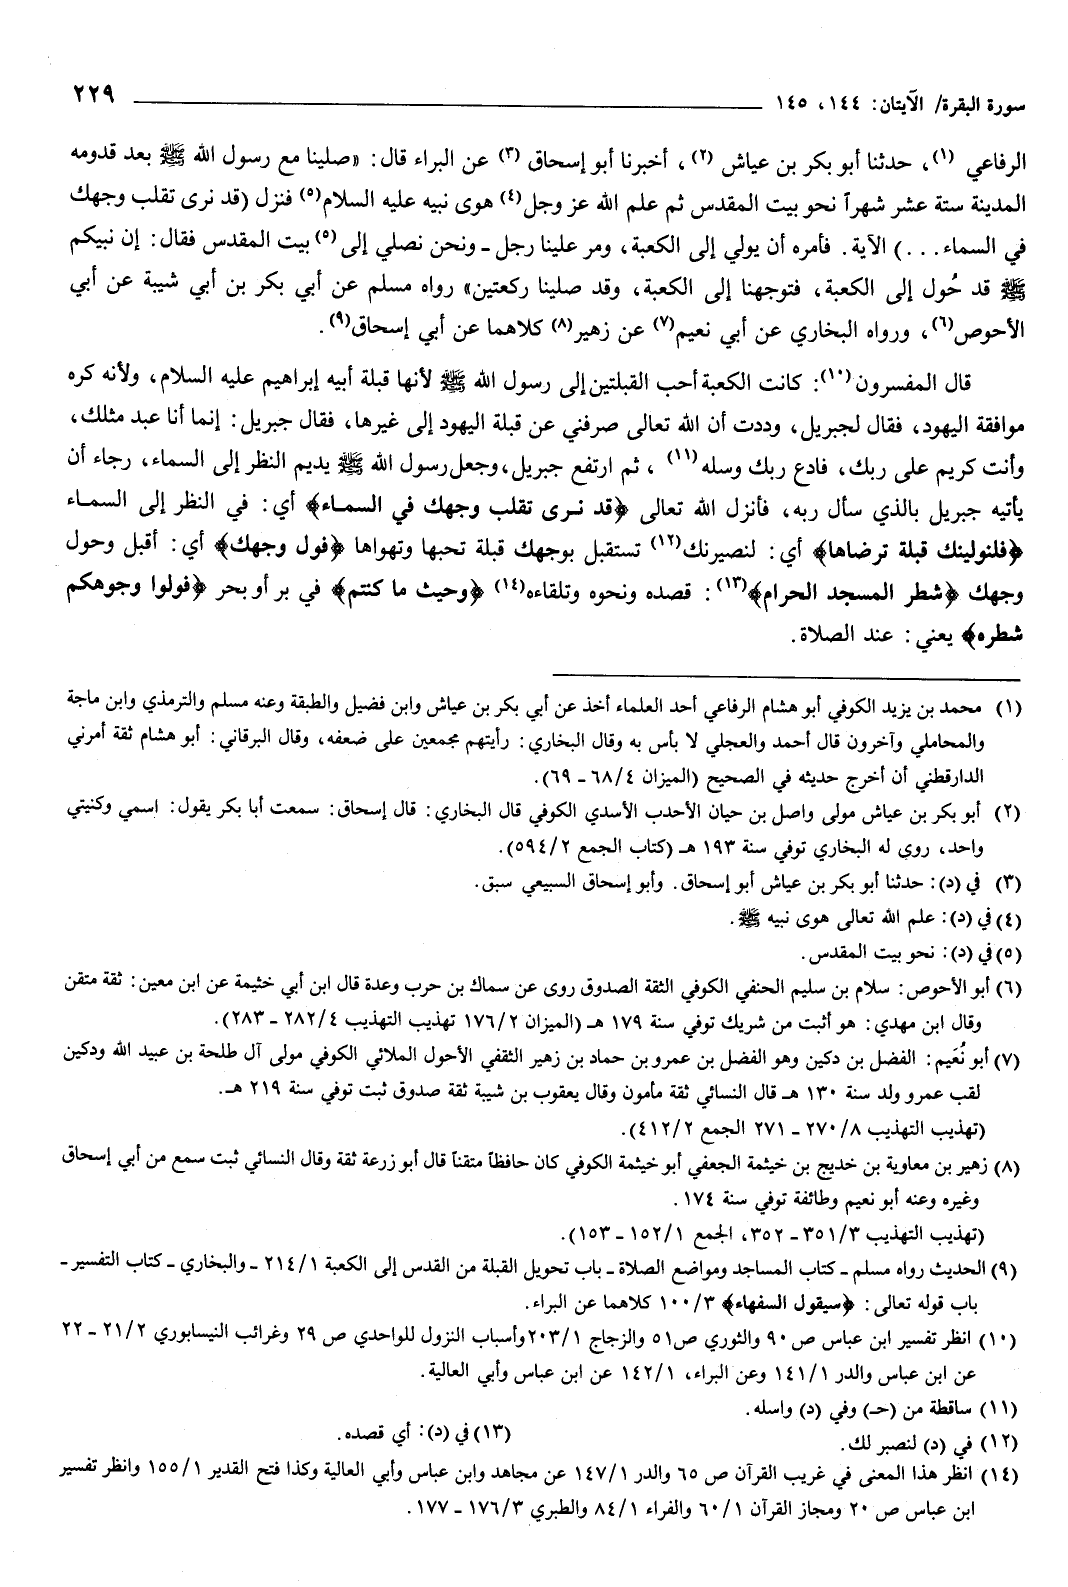 سورة البقرة/ الآيتان: ١٤٤، ١٤٥ ٢٢٩
الرفاعي (١)، حدثنا أبو بكر بن عياش (٢)، أخبرنا أبو إسحاق (٣) عن البراء قال: «صلينا مع رسول الله ﷺ بعد قدومه
المدينة ستة عشر شهراً نحو بيت المقدس ثم علم الله عز وجل(٤) هوى نبيه عليه السلام(٥) فنزل (قد نرى تقلب وجهك
في السماء...) الآية. فأمره أن يولي إلى الكعبة، ومر علينا رجل ـ ونحن نصلي إلى(٥) بيت المقدس فقال: إن نبيكم
ﷺ قد حُول إلى الكعبة، فتوجهنا إلى الكعبة، وقد صلينا ركعتين» رواه مسلم عن أبي بكر بن أبي شيبة عن أبي
الأحوص(٦)، ورواه البخاري عن أبي نعيم(٧) عن زهير(٨) كلاهما عن أبي إسحاق(٩).
قال المفسرون(١٠): كانت الكعبة أحب القبلتين إلى رسول الله ﷺ لأنها قبلة أبيه إبراهيم عليه السلام، ولأنه كره
موافقة اليهود، فقال لجبريل، وددت أن الله تعالى صرفني عن قبلة اليهود إلى غيرها، فقال جبريل: إنما أنا عبد مثلك،
وأنت كريم على ربك، فادع ربك وسله(١١)، ثم ارتفع جبريل، وجعل رسول الله ﷺ يديم النظر إلى السماء، رجاء أن
يأتيه جبريل بالذي سأل ربه، فأنزل الله تعالى ﴿قد نـرى تقلب وجهك في السماء﴾ أي: في النظر إلى السماء
﴿فلنولينك قبلة ترضاها﴾ أي: لنصيرنك(١٢) تستقبل بوجهك قبلة تحبها وتهواها ﴿فول وجهك﴾ أي: أقبل وحول
وجهك ﴿شطر المسجد الحرام﴾(١٣): قصده ونحوه وتلقاءه(١٤) ﴿وحيث ما كنتم﴾ في بر أو بحر ﴿فولوا وجوهكم
شطره﴾ يعني: عند الصلاة.
(١) محمد بن يزيد الكوفي أبو هشام الرفاعي أحد العلماء أخذ عن أبي بكر بن عياش وابن فضيل والطبقة وعنه مسلم والترمذي وابن ماجة
والمحاملي وآخرون قال أحمد والعجلي لا بأس به وقال البخاري: رأيتهم مجمعين على ضعفه، وقال البرقاني: أبو هشام ثقة أمرني
الدارقطني أن أخرج حديثه في الصحيح (الميزان ٦٨/٤ ـ ٦٩).
(٢) أبو بكر بن عياش مولى واصل بن حيان الأحدب الأسدي الكوفي قال البخاري: قال إسحاق: سمعت أبا بكر يقول: اسمي وكنيتي
واحد، روى له البخاري توفي سنة ١٩٣ هـ (كتاب الجمع ٥٩٤/٢).
(٣) في (د): حدثنا أبو بكر بن عياش أبو إسحاق. وأبو إسحاق السبيعي سبق.
(٤) في (د): علم الله تعالى هوى نبيه ﷺ.
(٥) في (د): نحو بيت المقدس.
(٦) أبو الأحوص: سلام بن سليم الحنفي الكوفي الثقة الصدوق روى عن سماك بن حرب وعدة قال ابن أبي خثيمة عن ابن معين: ثقة متقن
وقال ابن مهدي: هو أثبت من شريك توفي سنة ١٧٩ هـ (الميزان ١٧٦/٢ تهذيب التهذيب ٢٨٢/٤ ـ ٢٨٣).
(٧) أبو نُعَيم: الفضل بن دكين وهو الفضل بن عمرو بن حماد بن زهير الثقفي الأحول الملائي الكوفي مولى آل طلحة بن عبيد الله ودكين
لقب عمرو ولد سنة ١٣٠ هـ قال النسائي ثقة مأمون وقال يعقوب بن شيبة ثقة صدوق ثبت توفي سنة ٢١٩ هـ.
(تهذيب التهذيب ٢٧٠/٨ ـ ٢٧١ الجمع ٤١٢/٢).
(٨) زهير بن معاوية بن خديج بن خيثمة الجعفي أبو خيثمة الكوفي كان حافظاً متقناً قال أبو زرعة ثقة وقال النسائي ثبت سمع من أبي إسحاق
وغيره وعنه أبو نعيم وطائفة توفي سنة ١٧٤.
(تهذيب التهذيب ٣٥١/٣ ـ ٣٥٢، الجمع ١٥٢/١ ـ ١٥٣).
(٩) الحديث رواه مسلم ـ كتاب المساجد ومواضع الصلاة ـ باب تحويل القبلة من القدس إلى الكعبة ٢١٤/١ ـ والبخاري ـ كتاب التفسير ـ
باب قوله تعالى: ﴿سيقول السفهاء﴾ ١٠٠/٣ كلاهما عن البراء.
(١٠) انظر تفسير ابن عباس ص ٩٠ والثوري ص٥١ والزجاج ٢٠٣/١ وأسباب النزول للواحدي ص ٢٩ وغرائب النيسابوري ٢١/٢ ـ ٢٢
عن ابن عباس والدر ١٤١/١ وعن البراء، ١٤٢/١ عن ابن عباس وأبي العالية.
(١١) ساقطة من (حـ) وفي (د) واسله.
(١٢) في (د) لنصبر لك. (١٣) في (د): أي قصده.
(١٤) انظر هذا المعنى في غريب القرآن ص ٦٥ والدر ١٤٧/١ عن مجاهد وابن عباس وأبي العالية وكذا فتح القدير ١٥٥/١ وانظر تفسير
ابن عباس ص ٢٠ ومجاز القرآن ٦٠/١ والفراء ٨٤/١ والطبري ١٧٦/٣ ـ ١٧٧.